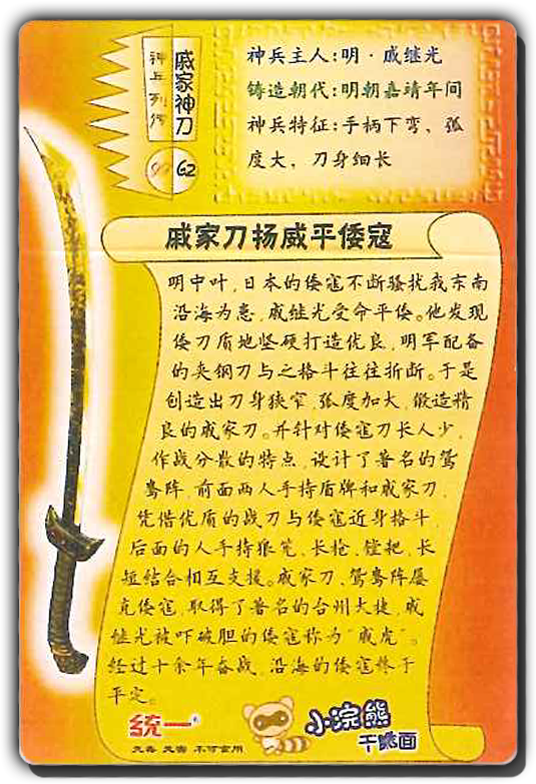 神兵列传
戚家神刀
62
神兵主人:明·戚继光
铸造朝代:明朝嘉靖年间
神兵特征:手柄下弯、弧
度大、刀身细长
戚家刀扬威平倭寇
明中叶,日本的倭寇不断骚扰我东南
沿海为患,戚继光受命平倭。他发现
倭刀质地坚硬打造优良,明军配备
的夹钢刀与之格斗往往折断。于是
创造出刀身狭窄,弧度加大,锻造精
良的戚家刀。并针对倭寇刀长人少,
作战分散的特点,设计了著名的鸳
鸯阵,前面两人手持盾牌和戚家刀,
凭借优质的战刀与倭寇近身格斗,
后面的人手持狼筅,长枪,镗耙,长
短结合相互支援。戚家刀,鸳鸯阵屡
克倭寇,取得了著名的台州大捷,戚
继光被吓破胆的倭寇称为“戚虎”。
经过十余年奋战,沿海的倭寇终于
平定。
统一
小浣熊
干脆面
无毒 无害 不可食用